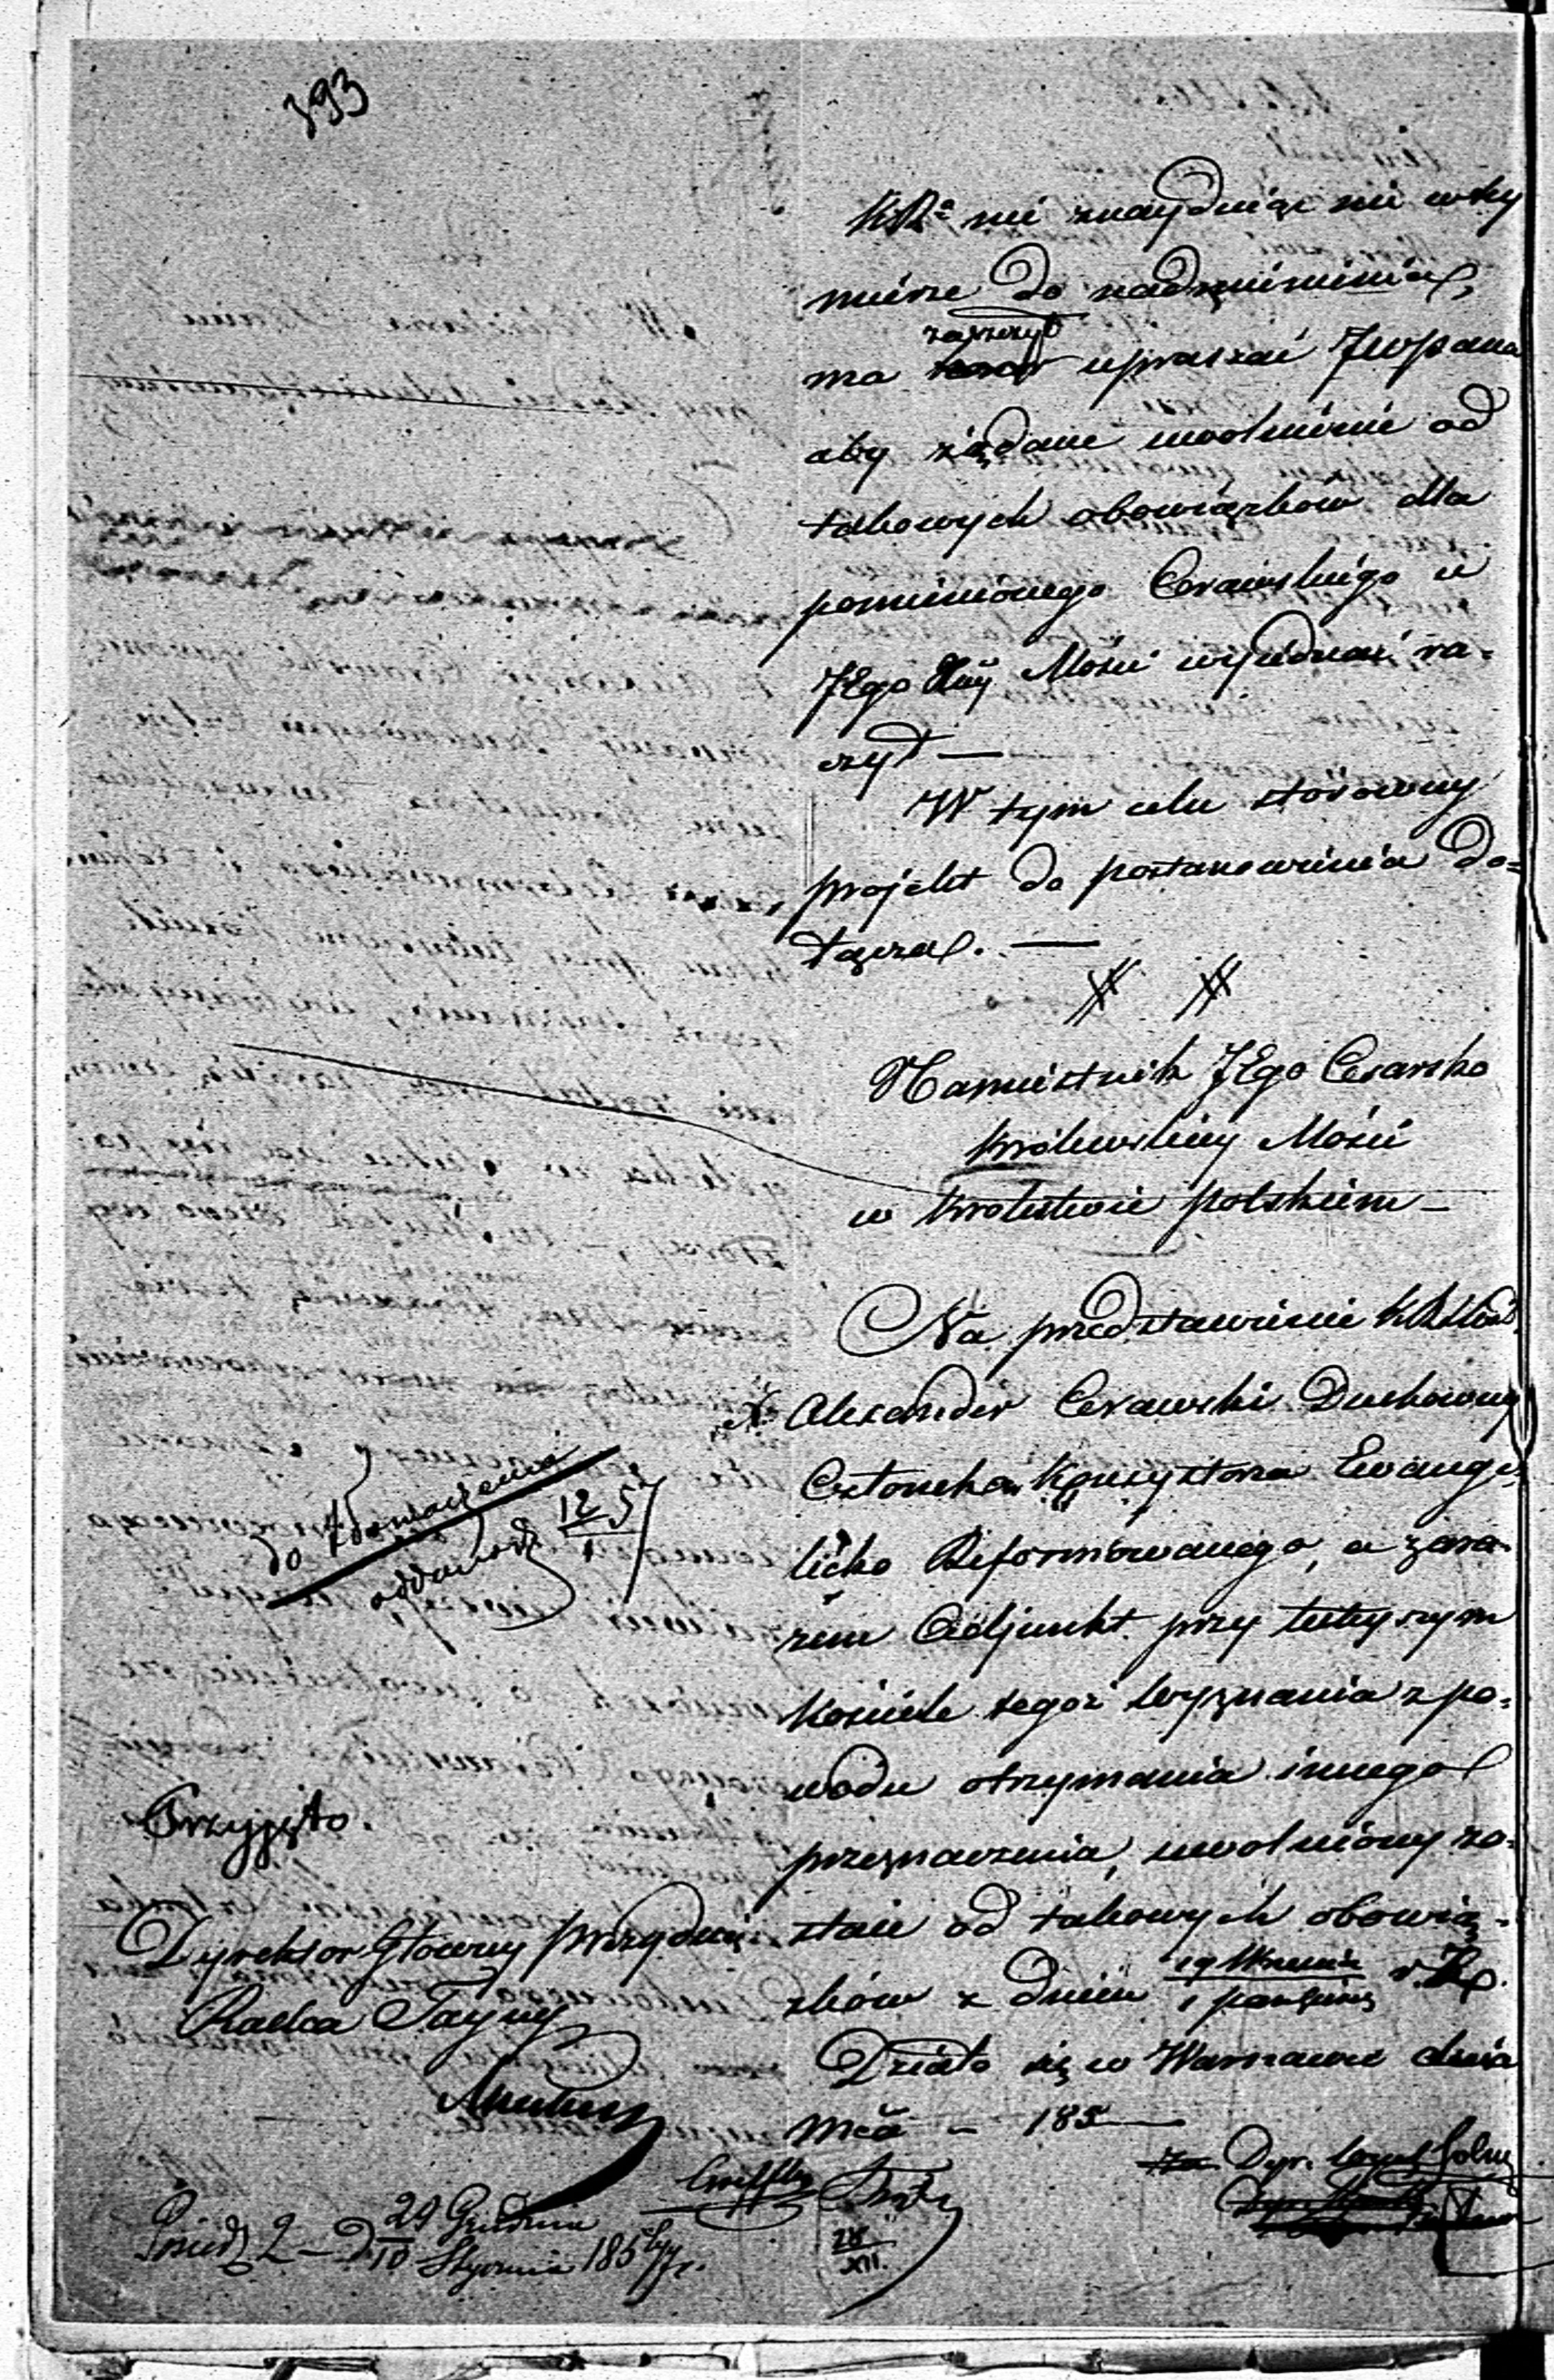 393
KRz nie znayduiąc nic w tey
mierze do nadmienienia,
zaszczyt
ma upraszać JWPana
aby żądane uwolnienie od
takowych obowiązków dla
pomienionego Cerawskiego u
JEgo Mości wyjednać ra-
czył —
W tym celu stosowny
projekt do postanowienia do-
łącza. —
Namiestnik JEgo Cesarsko
Królewskiey Mości
w Królestwie Polskiem —
Na przedstawienie
X. Alexander Cerawski Duchowny
Członek Konsystorza Ewange-
licko Reformowanego, a zara-
zem Adjunkt przy tutejszym
Kościele tegoż Wyznania z po-
wodu otrzymania innego
przeznaczenia, uwolniony zo-
staie od takowych obowią-
zków z dniem 19 Września
1 Paździer r. z.
Działo się w Warszawie dnia
Mca — 185 —
do tłomaczenia
12/1 57
Przyjęto.
Dyrektor Główny Prezyduiący
Radca Tayny
Posiedz 2 — D 29 Grudnia
10 Stycznia 185
28
XII.
Dyr.